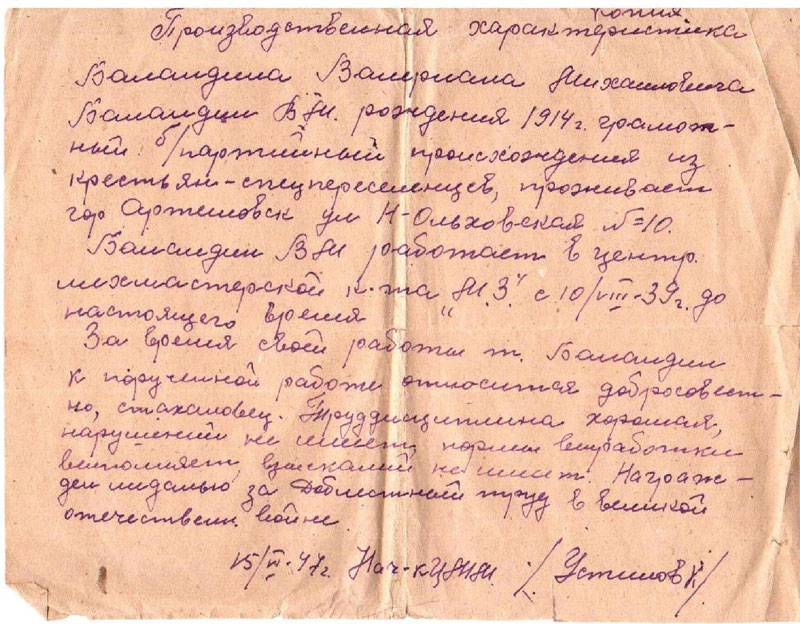 Копия
Производственная характеристика
Баландина Валериана Михайловича
Баландин В.М. рождения 1914 г. грамот-
ный б/партийный происхождения из
крестьян-спецпереселенцев, проживает
гор Артемовск ул Н-Ольховская №=10.
Баландин ВМ работает в центр.
мехмастерской к-та „М.З." с 10/VIII-39г. до
настоящего время
За время своей работы т. Баландин
к порученной работе относится добросовест-
но, стахановец. Труддисциплина хорошая,
нарушений не имеет, нормы выработки
выполняет, взысканий не имеет. Награж-
ден медалью за Доблестный труд в великой
отечественн. войне.
15/VI-47г. Нач-к ЦММ. /Устинов/